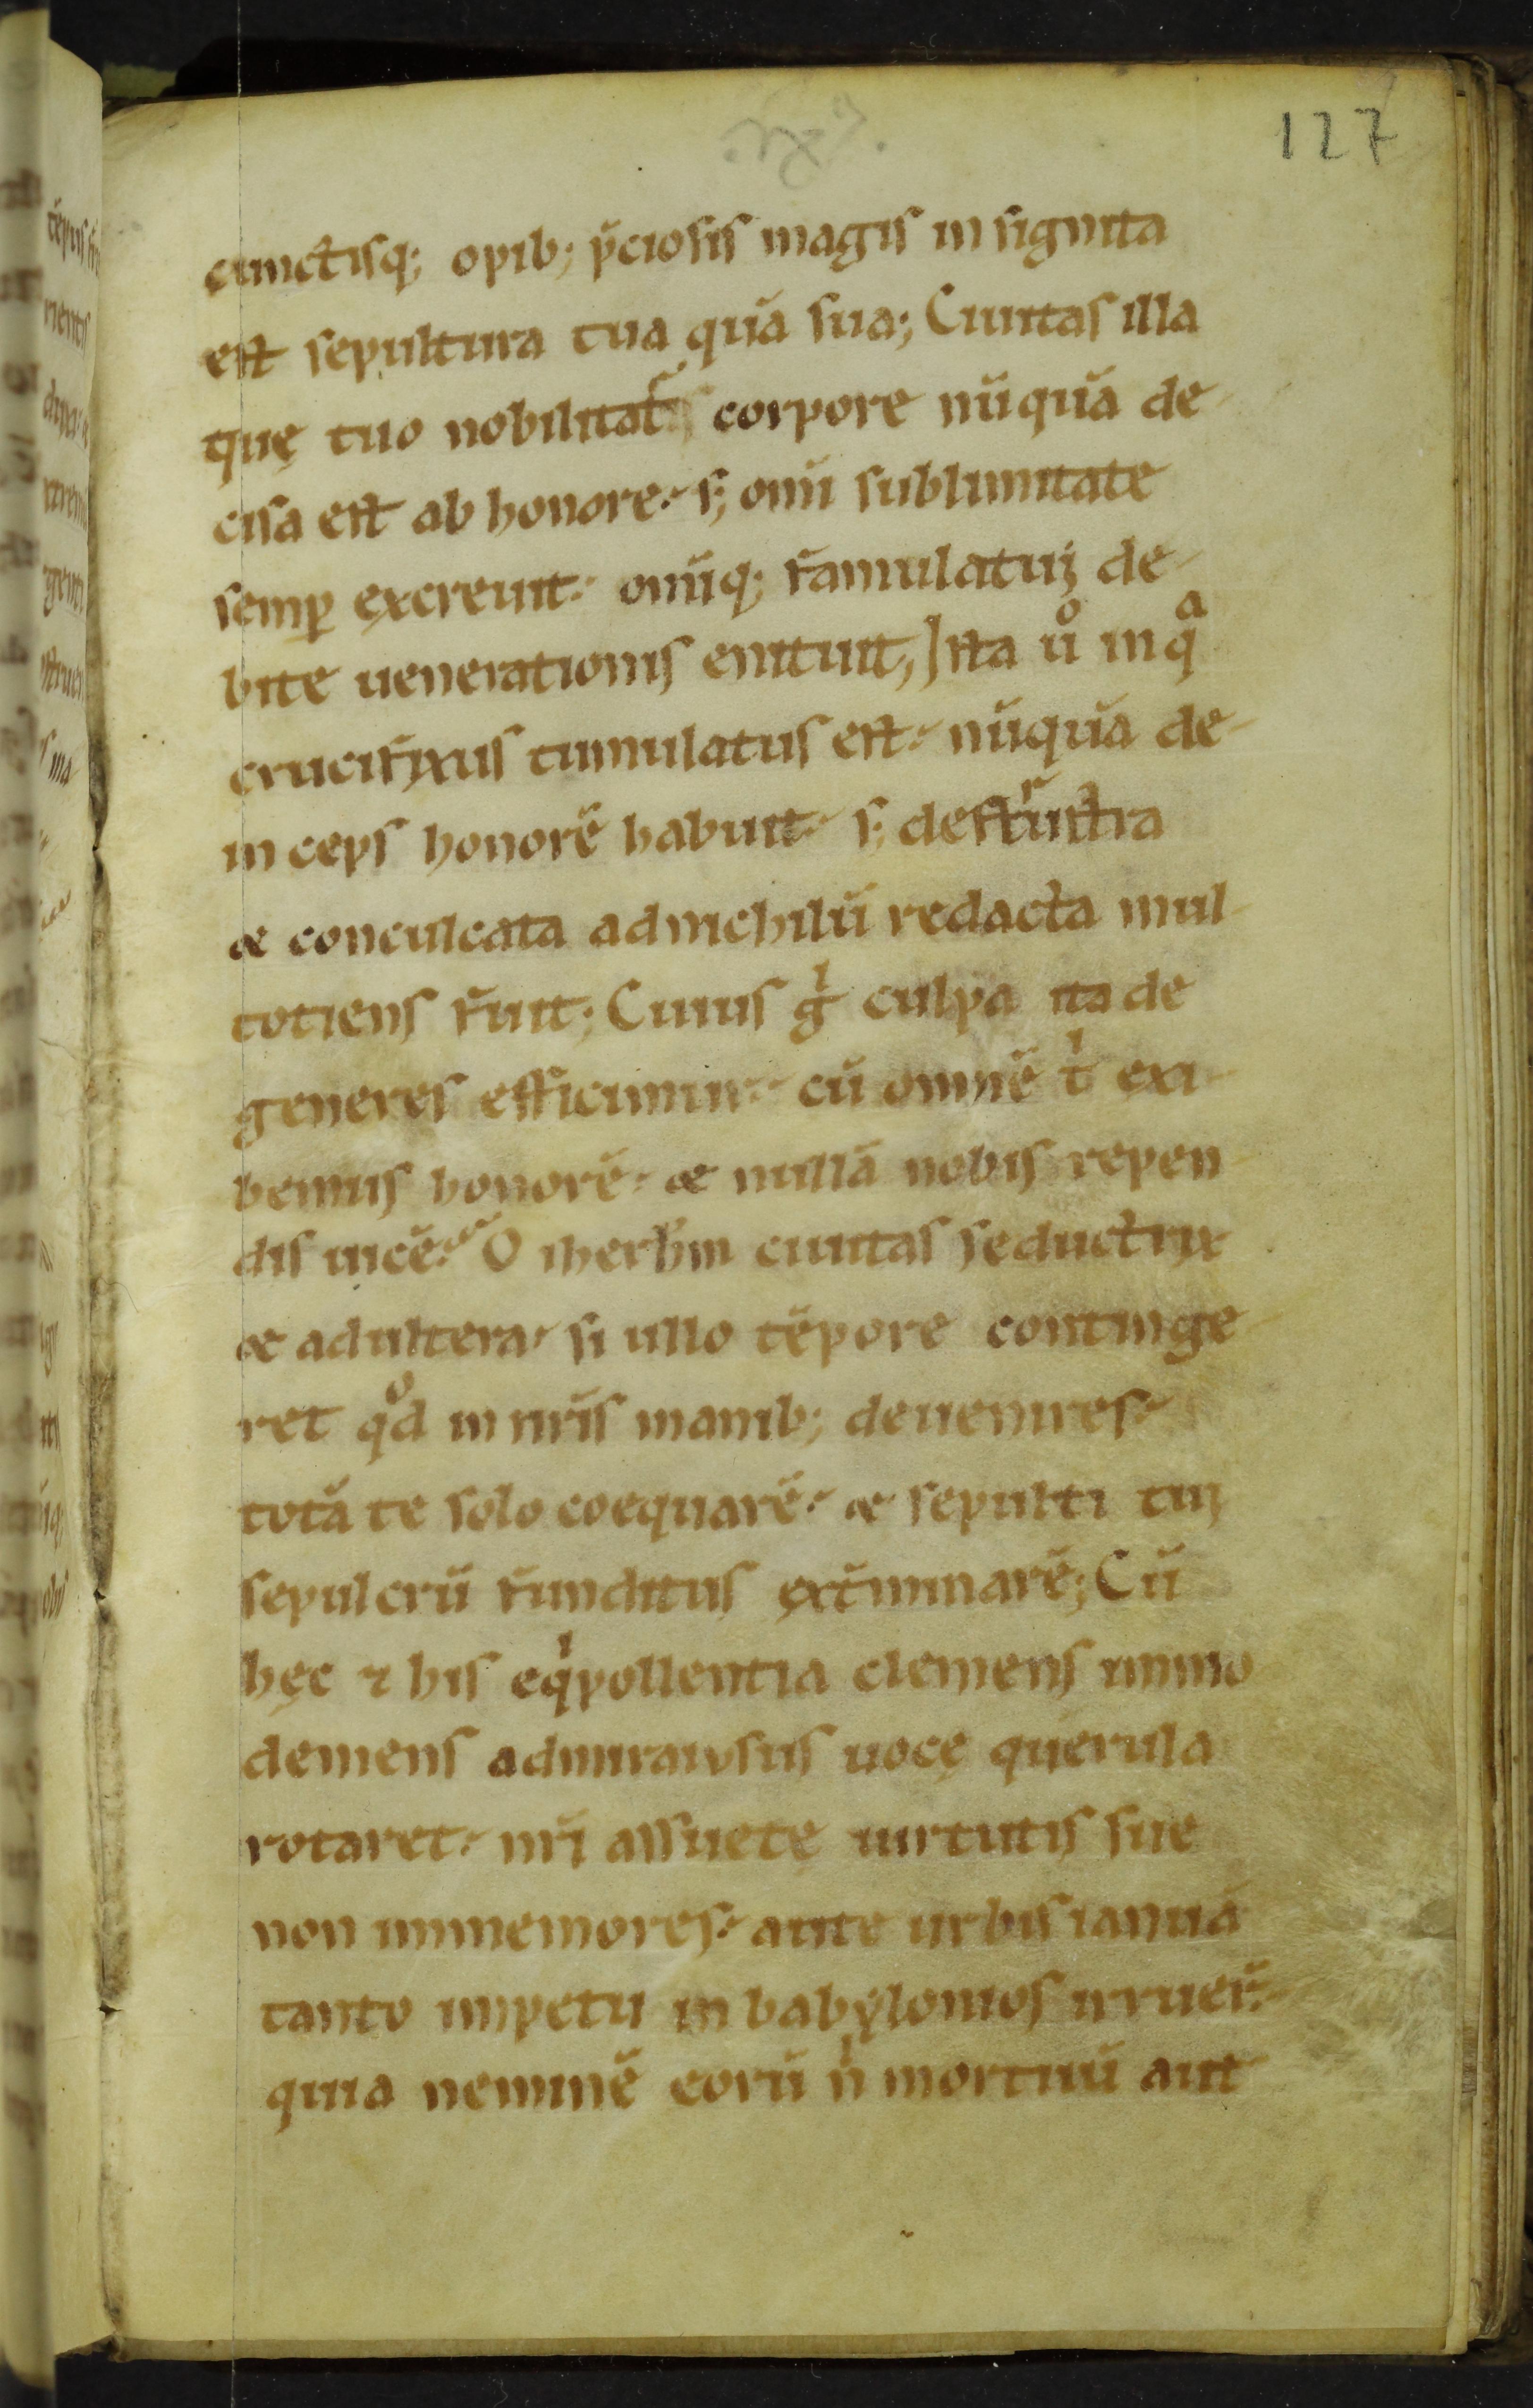 127
cunctisq; opib; p̄ciosis magis insignita
est sepultura tua quā sua; Ciuitas illa
quę tuo nobilitat̄ corpore nūquā de-
cisa est ab honore. s; omī sublimitate
semp̲ excreuit. omīq; famulatuiʒ de-
bite uenerationis enituit, Ista uº in qᵃ
crucifixus tumulatus est. nūquā de-
inceps honorē habuit. s; destructa
& conculcata ad nichilū redacta mul-
totiens fuit; Cuius gⁱ culpa ita de
generes efficimur. cū omnē tⁱ exi-
bemus honorē. & nullā nobis repen
dis uicē. O iherl̄m ciuitas seductrix
& adultera. si ullo tēpore continge-
ret qºd in nr̄is manib; deuenires.
totā te solo coequarē. & sepulti tui
sepulcrū funditus ext̄minarē; Cū
hęc ⁊ his eqⁱpollentia clemens immo
demens admirauisus uocę querula
rotaret. nr̄i assuetę uirtutis sue
non immemores. ante urbis ianuā
tanto impetu in babẏlonios irruer̄.
quia neminē eorū nⁱ mortuū aut